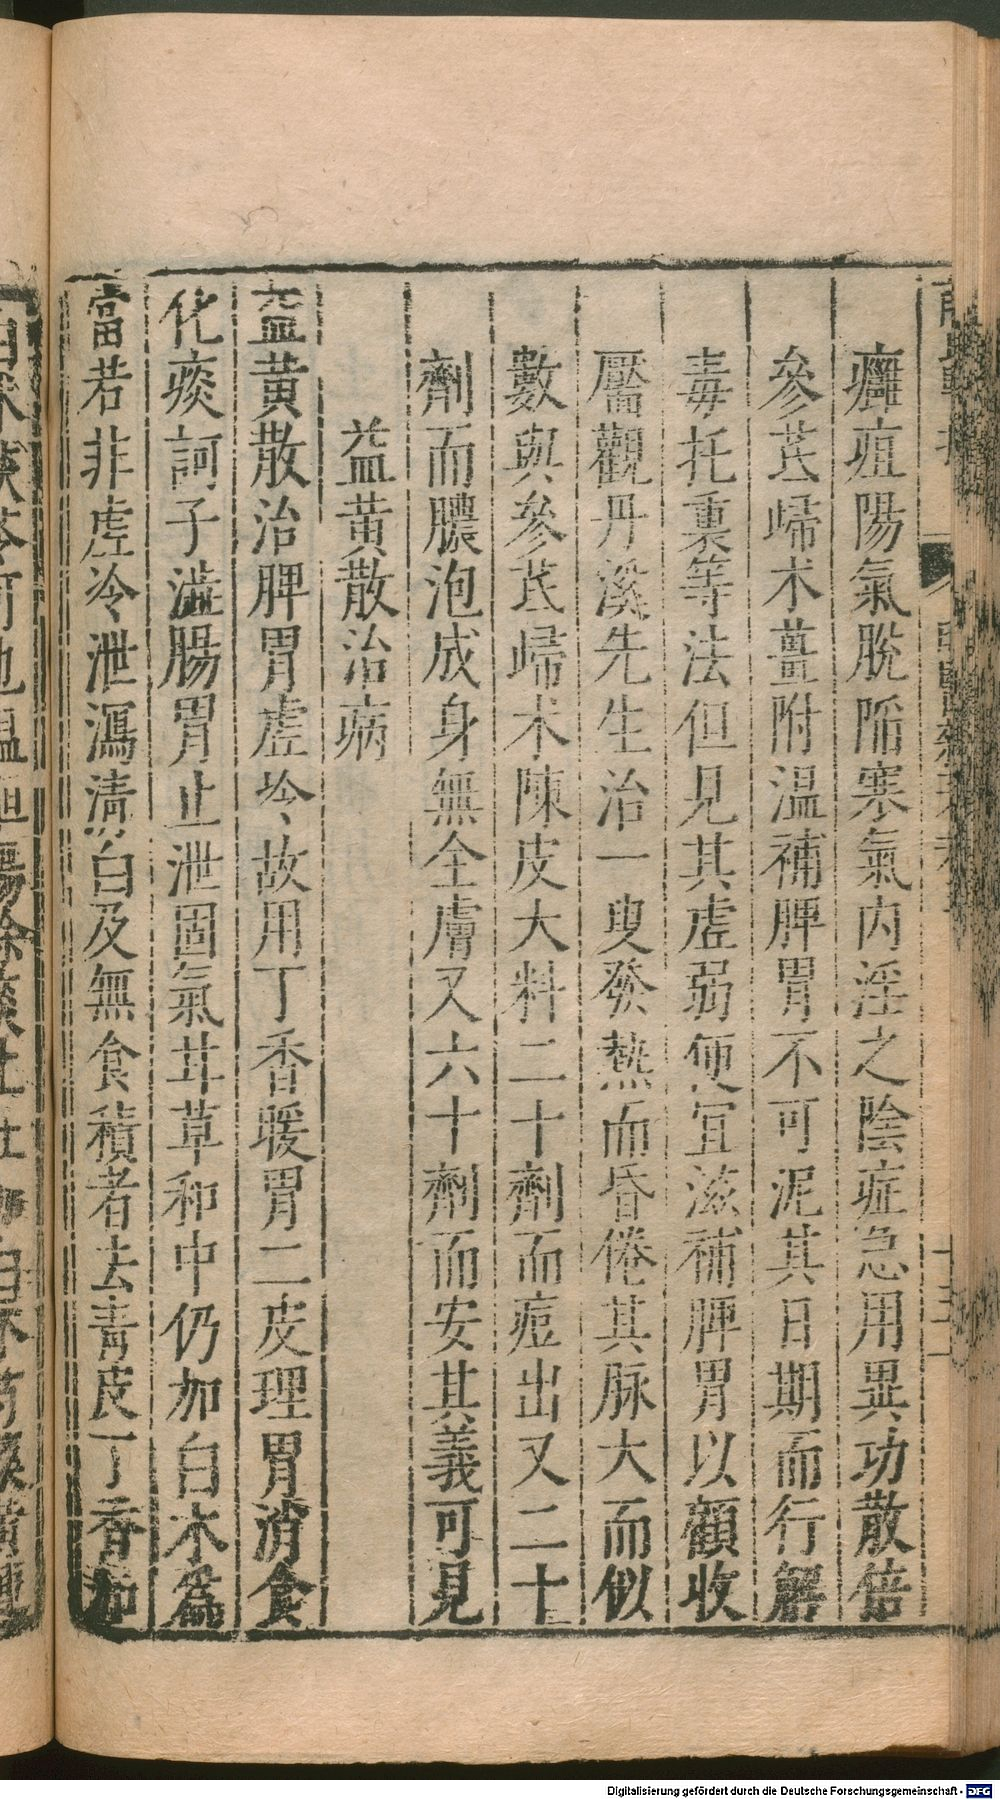 癰疽陽氣脫陷寒氣内淫之陰症急用異功散倍
參芪歸术薑附温補脾胃不可泥其日期而行解
毒托裏等法但見其虚弱便宜滋補脾胃以顧收
靨觀丹溪先生治一叟發熱而昏倦其脉大而似
數與參芪歸术陳皮大料二十劑而痘出又二十
劑而膿泡成身無全膚又六十劑而安其義可見
益黄散治病
益黄散治脾胃虚冷故用丁香暖胃二皮理胃消食
化痰訶子澁腸胃止泄固氣甘草和中仍加白木爲
當若非虚冷泄瀉清白及無食積者去青皮丁香加
Digitalisierung gefördert durch die Deutsche Forschungsgemeinschaft - DFG